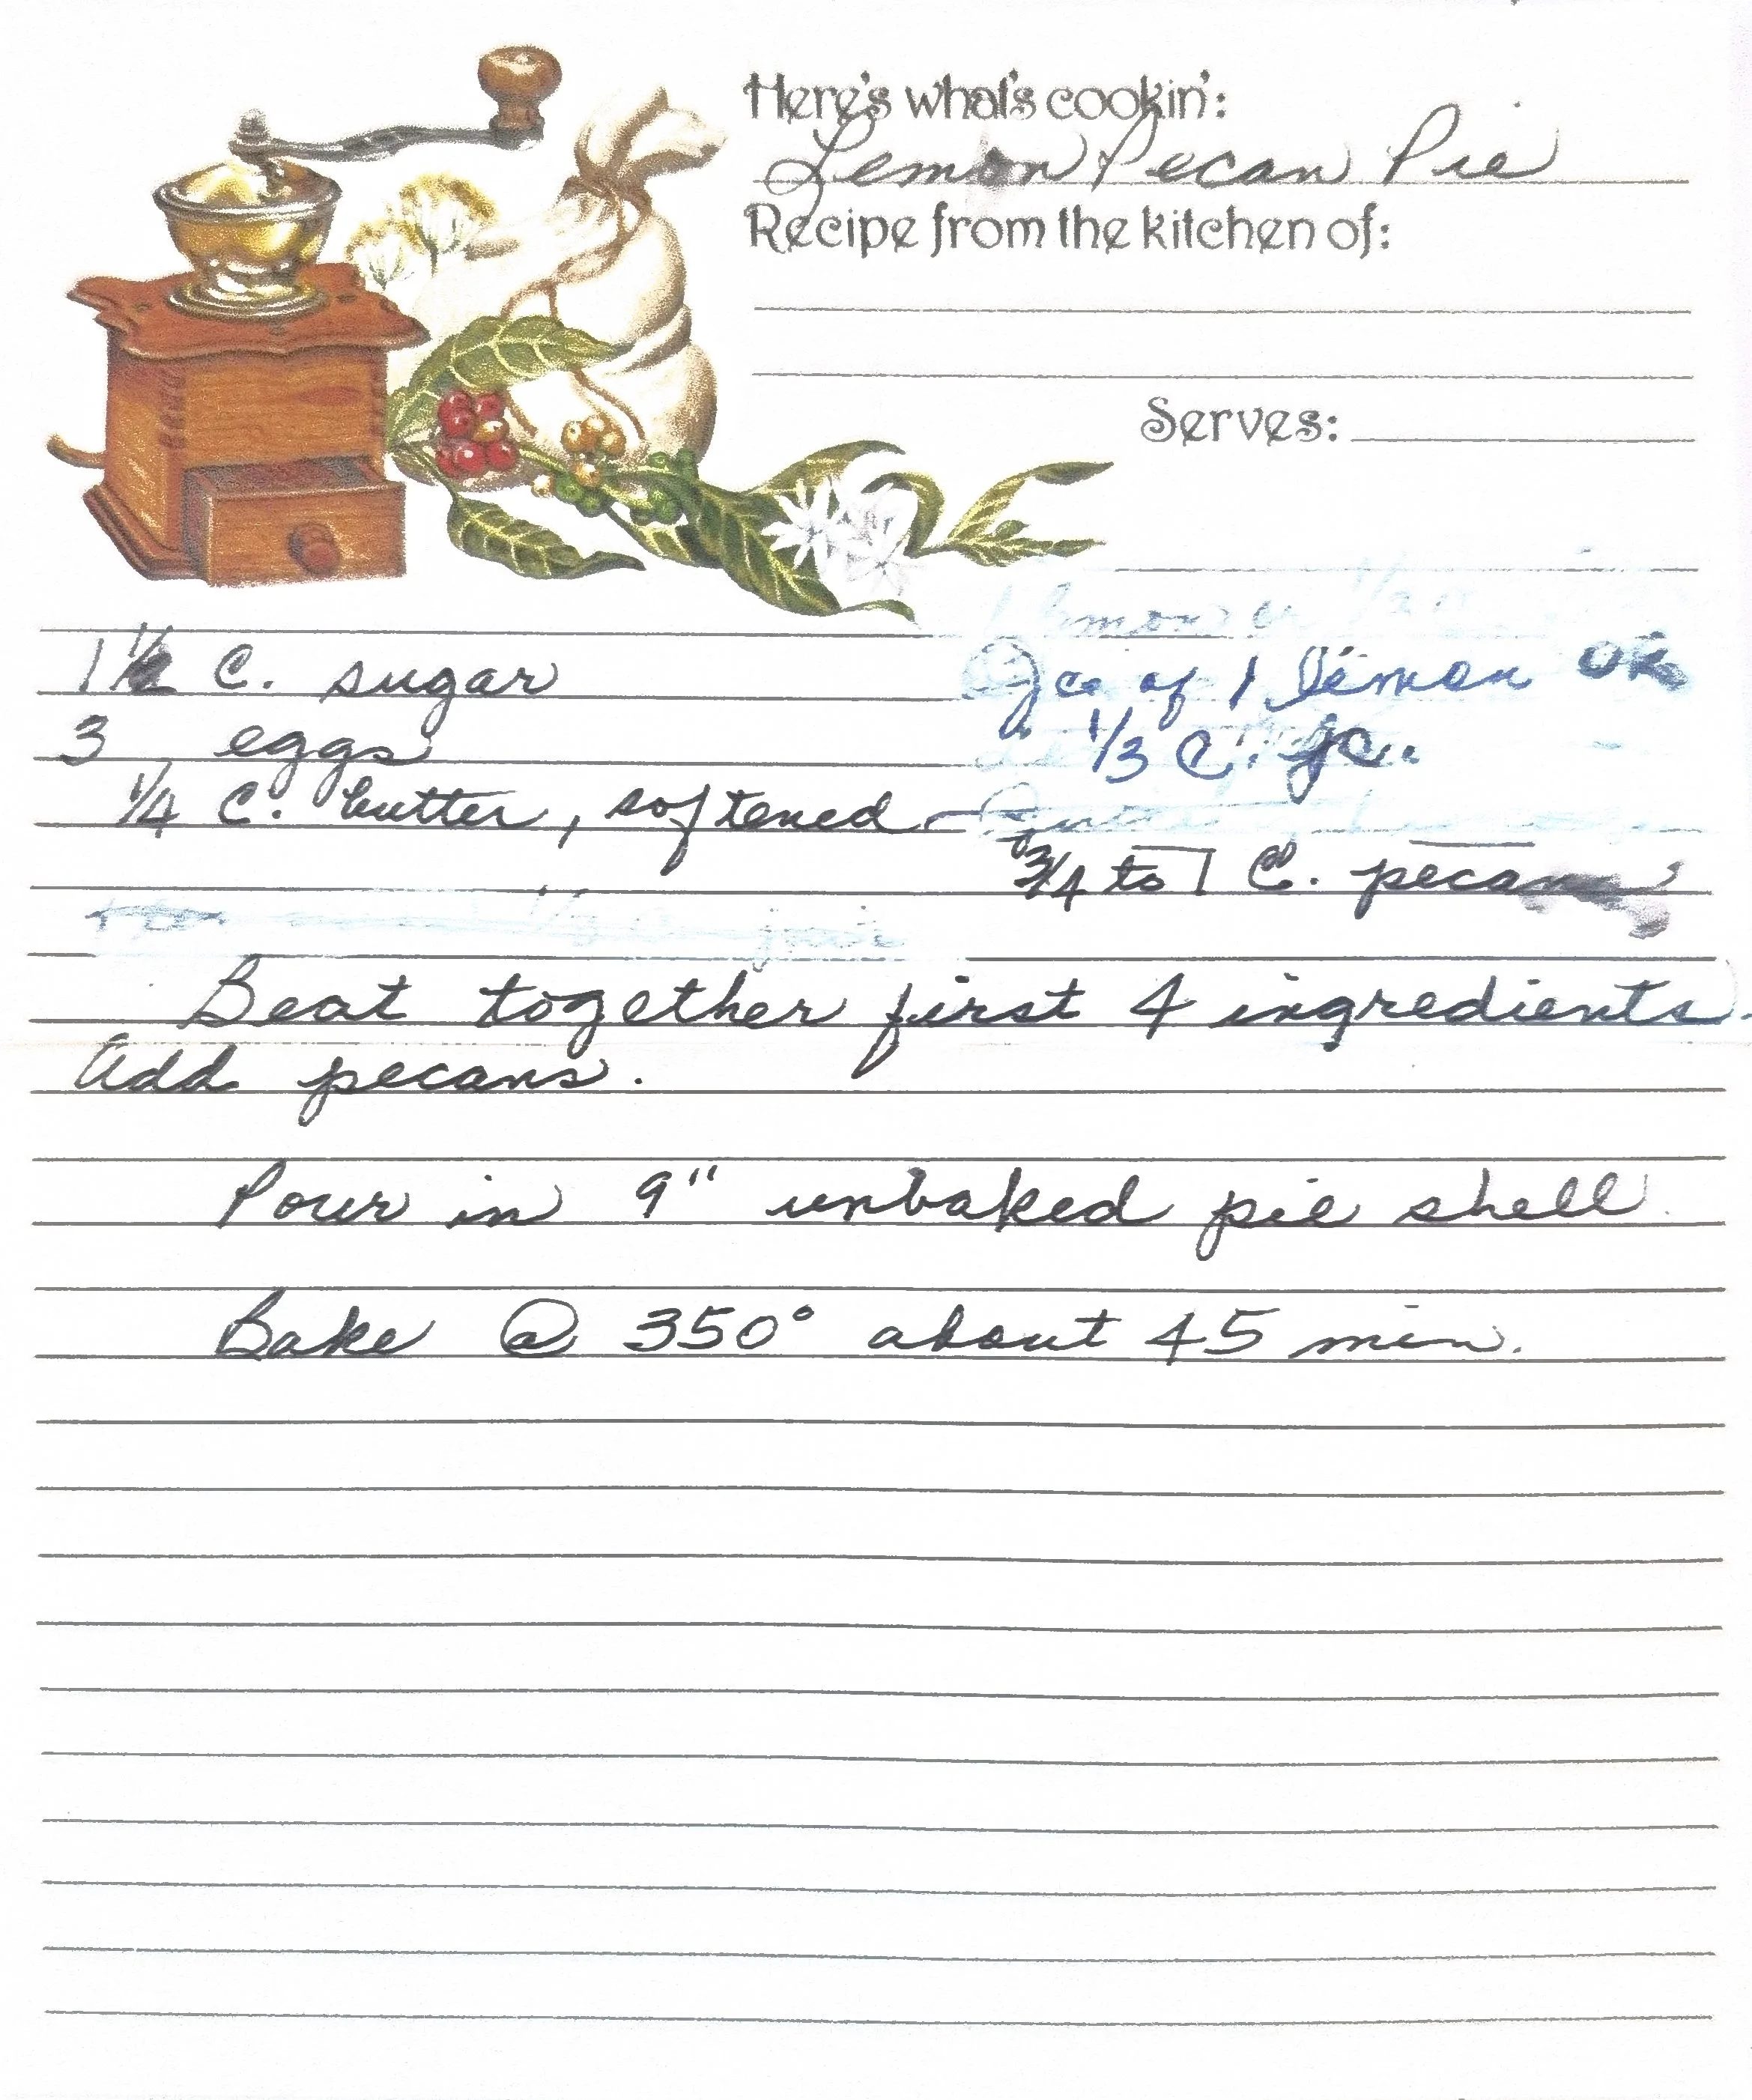 Here's what's cookin':
Lemon Pecan Pie
Recipe from the kitchen of:
Serves:
1 1/2 C. sugar
3 eggs
1/4 C. butter, softened
Jce of 1 lemon or
1/3 C. jc.
3/4 to 1 C. pecans
Beat together first 4 ingredients.
Add pecans.
Pour in 9" unbaked pie shell.
Bake @ 350° about 45 min.